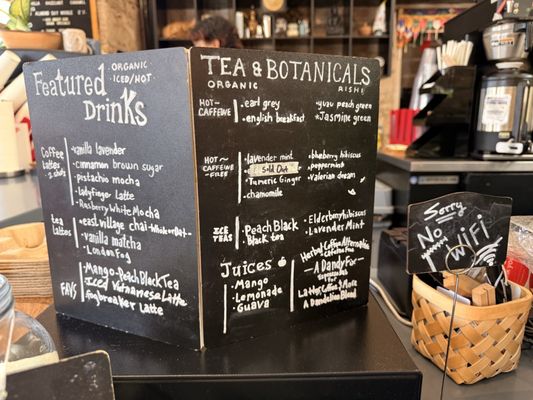 Featured
Drinks
ORGANIC
ICED/HOT
Coffee
Lattes
2 shots
vanilla lavender
cinnamon brown sugar
pistachio mocha
ladyfinger Latte
Rasberry White Mocha
tea
Lattes
east village chai
Whisker Dot
vanilla matcha
London Fog
FAVS
Mango-Peach Black Tea
Iced Vietnamese Latte
fogbreaker Latte
TEA & BOTANICALS
ORGANIC
RISHI
HOT~
CAFFEINE
earl grey
english breakfast
yuzu peach green
Jasmine green
HOT~
CAFFEINE
~FREE
lavender mint
Sold Out
Tumeric Ginger
chamomile
blueberry hibiscus
peppermint
Valerian dream
ICE
TEAS
Peach Black
Black tea
Elderberry hibiscus
Lavender Mint
Juices
Mango
Lemonade
Guava
Herbal Coffee Alternative
caffeine Free
~A Dandy For~
Lattes, Coffee, & More
A Dandelion Blend
Sorry
No WiFi